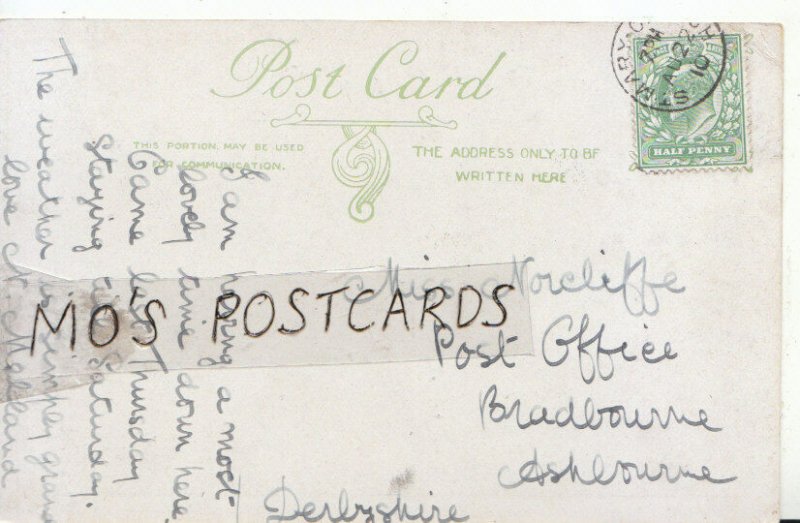 Post Card
THIS PORTION MAY BE USED
FOR COMMUNICATION.
THE ADDRESS ONLY TO BE
WRITTEN HERE
HALF PENNY
ST MARY
AU 22
10
I am having a most
lovely time down here
Came last Thursday
Staying till Saturday.
The weather is simply grand
love N.
MO'S POSTCARDS
Miss Norcliffe
Post Office
Bradbourne
Ashbourne
Derbyshire